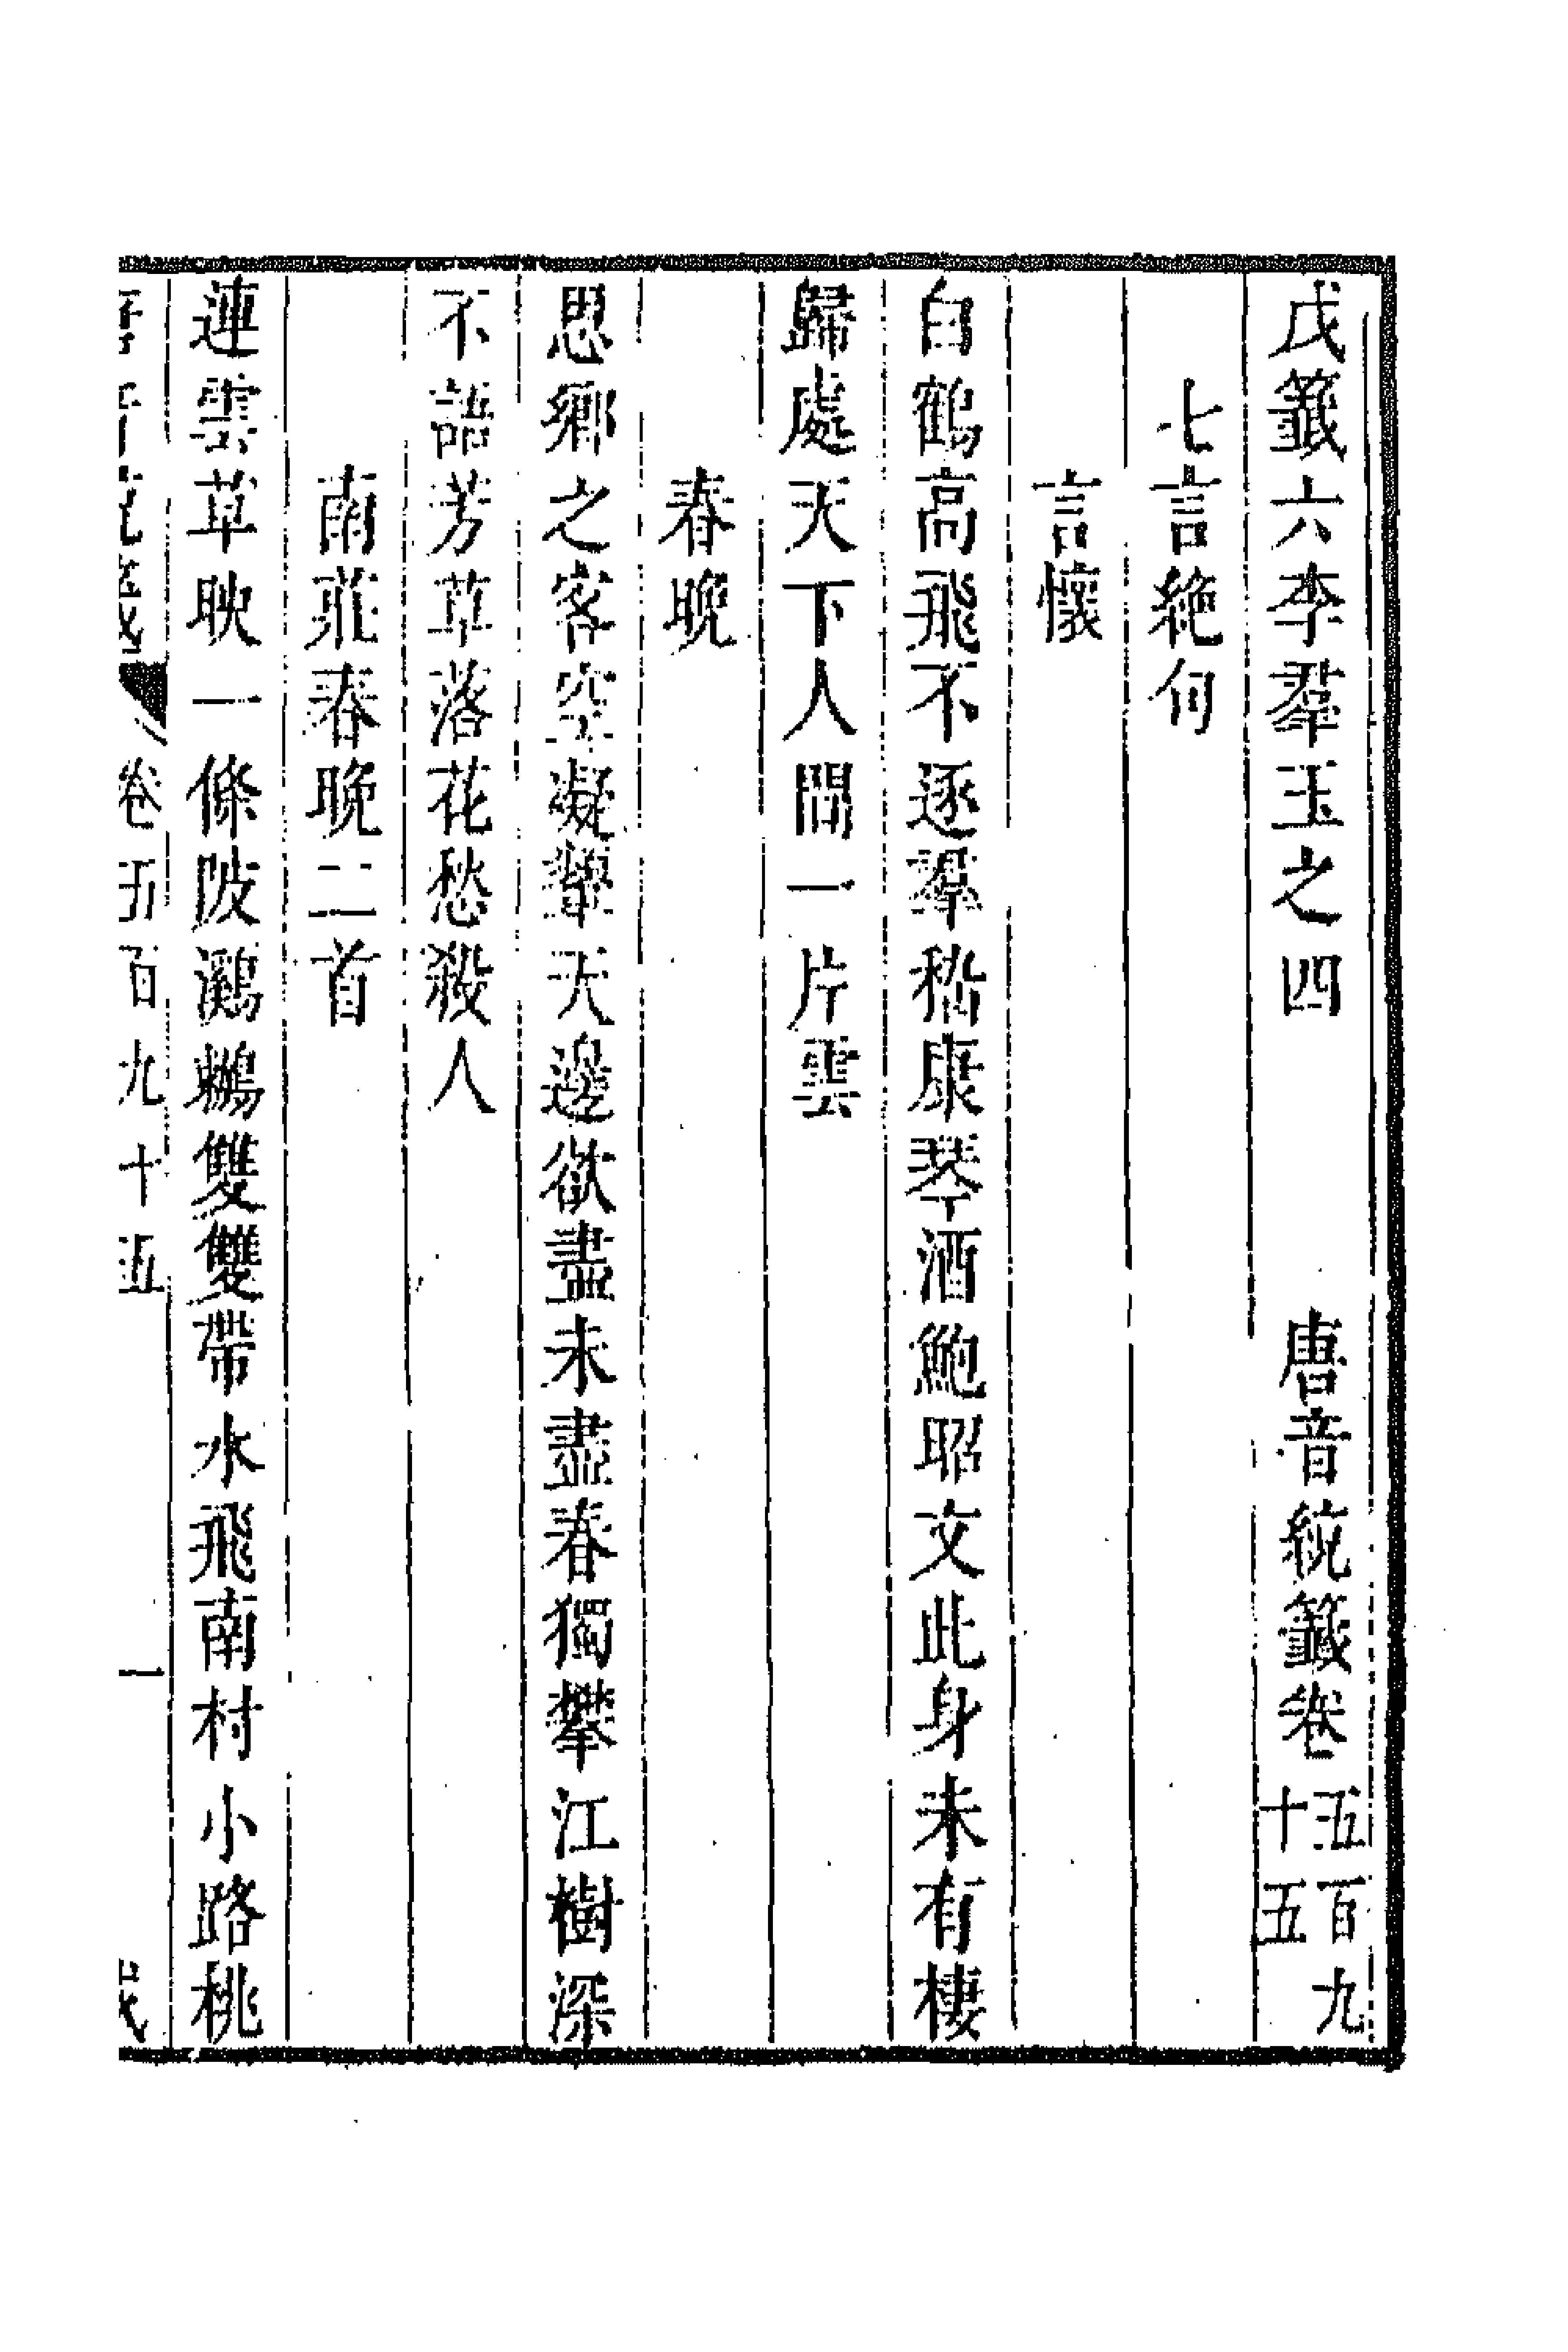 戊籤六李羣玉之四　唐音統籤卷五百九十五
七言絶句
言懷
白鶴高飛不逐羣嵇康琴酒鮑昭文此身未有棲
歸處天下人間一片雲
春晚
思鄉之客空凝顰天邊欲盡未盡春獨攀江樹深
不語芳草落花愁殺人
南莊春晚二首
連雲草映一條陂鸂鶒雙雙帶水飛南村小路桃
卷五百九十五　一